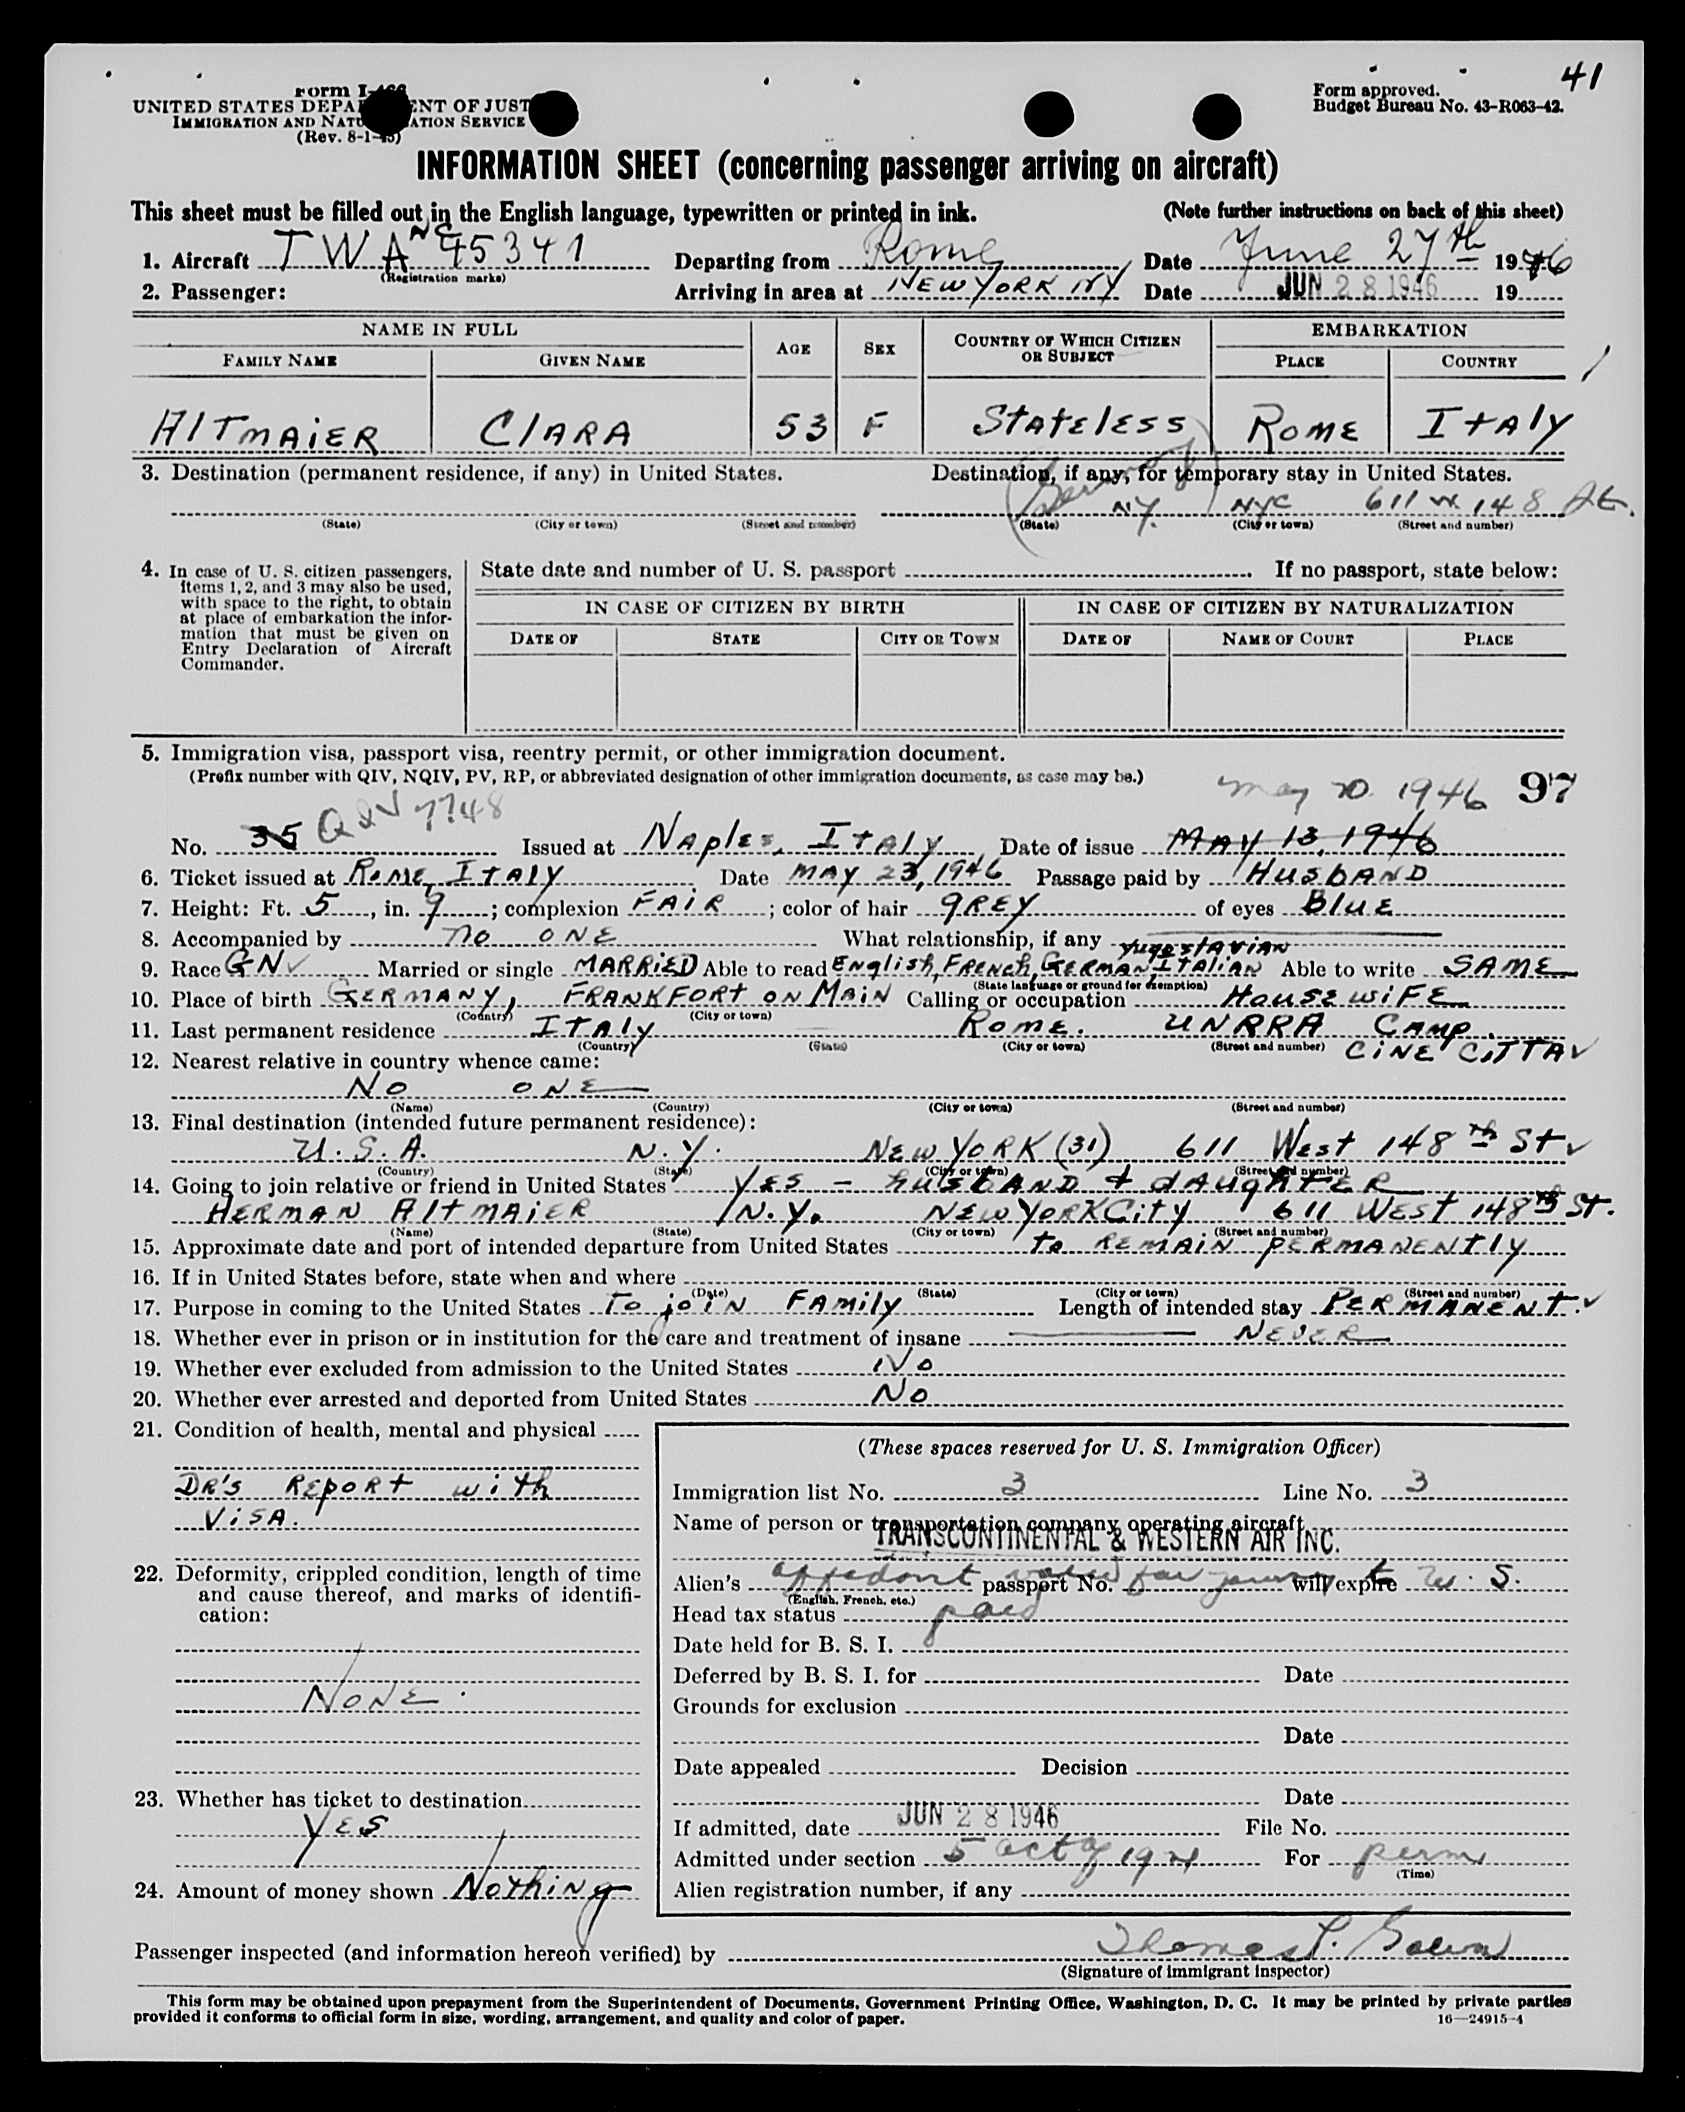 41
Form I-466
UNITED STATES DEPARTMENT OF JUSTICE
IMMIGRATION AND NATURALIZATION SERVICE
(Rev. 8-1-45)
Form approved.
Budget Bureau No. 43-R063-42.
INFORMATION SHEET (concerning passenger arriving on aircraft)
This sheet must be filled out in the English language, typewritten or printed in ink. (Note further instructions on back of this sheet)
1. Aircraft TWA NC 45341 Departing from Rome Date June 27th 1946
(Registration marks)
2. Passenger: Arriving in area at NEW YORK NY Date JUN 28 1946 19
NAME IN FULL AGE SEX COUNTRY OF WHICH CITIZEN OR SUBJECT EMBARKATION
FAMILY NAME GIVEN NAME PLACE COUNTRY
AlTMAiER ClARA 53 F StAtElESS ROME ItAly
3. Destination (permanent residence, if any) in United States. Destination, if any, for temporary stay in United States.
(Germany) NY. NYC 611 W 148 St.
(State) (City or town) (Street and number) (State) (City or town) (Street and number)
4. In case of U. S. citizen passengers, items 1, 2, and 3 may also be used, with space to the right, to obtain at place of embarkation the information that must be given on Entry Declaration of Aircraft Commander.
State date and number of U. S. passport If no passport, state below:
IN CASE OF CITIZEN BY BIRTH IN CASE OF CITIZEN BY NATURALIZATION
DATE OF STATE CITY OR TOWN DATE OF NAME OF COURT PLACE
5. Immigration visa, passport visa, reentry permit, or other immigration document.
(Prefix number with QIV, NQIV, PV, RP, or abbreviated designation of other immigration documents, as case may be.)
May 20 1946 97
No. 35 QIV 7748 Issued at NAplEs, ItAly Date of issue MAy 13, 1946
6. Ticket issued at ROME, ItAly Date MAy 23, 1946 Passage paid by HUSbAND
7. Height: Ft. 5, in. 9; complexion FAiR; color of hair gREy of eyes BluE
8. Accompanied by no ONE What relationship, if any
yugoslAviAN
9. Race GN Married or single MARRiED Able to read ENglish, FRENch, GERMAN, ItAliAN Able to write SAME
(State language or ground for exemption)
10. Place of birth GERMANY, FRANKFORt ON MAiN Calling or occupation HousEwiFE
(Country) (City or town)
11. Last permanent residence ItAly ROME. UNRRA CAMP.
(Country) (State) (City or town) (Street and number) CiNE CiTTA
12. Nearest relative in country whence came:
NO ONE
(Name) (Country) (City or town) (Street and number)
13. Final destination (intended future permanent residence):
U.S.A. N.Y. NEW YORK (31) 611 WEst 148th St
(Country) (State) (City or town) (Street and number)
14. Going to join relative or friend in United States YES - husbAND & dAughtER
HERMAN AltMAiER N.Y. NEW YORK City 611 WEst 148th St.
(Name) (State) (City or town) (Street and number)
15. Approximate date and port of intended departure from United States to REMAiN pERMANENtly
16. If in United States before, state when and where
(Date) (State) (City or town) (Street and number)
17. Purpose in coming to the United States To joiN FAMily Length of intended stay PERMANENT.
18. Whether ever in prison or in institution for the care and treatment of insane NEVER
19. Whether ever excluded from admission to the United States No
20. Whether ever arrested and deported from United States No
21. Condition of health, mental and physical
DR's REpORt with
ViSA.
22. Deformity, crippled condition, length of time and cause thereof, and marks of identification:
NONE.
23. Whether has ticket to destination
YES
24. Amount of money shown NothiNg
(These spaces reserved for U. S. Immigration Officer)
Immigration list No. 3 Line No. 3
Name of person or transportation company operating aircraft
TRANSCONTINENTAL & WESTERN AIR INC.
Alien's affedavit passport No. valid for journey will expire to U.S.
(English, French, etc.)
Head tax status paid
Date held for B. S. I.
Deferred by B. S. I. for Date
Grounds for exclusion
Date
Date appealed Decision
Date
If admitted, date JUN 28 1946 File No.
Admitted under section 5 act of 1924 For perm
(Time)
Alien registration number, if any
Passenger inspected (and information hereon verified) by Thomas P.
(Signature of Immigrant Inspector)
This form may be obtained upon prepayment from the Superintendent of Documents, Government Printing Office, Washington, D. C. It may be printed by private parties
provided it conforms to official form in size, wording, arrangement, and quality and color of paper.
16—24915-4